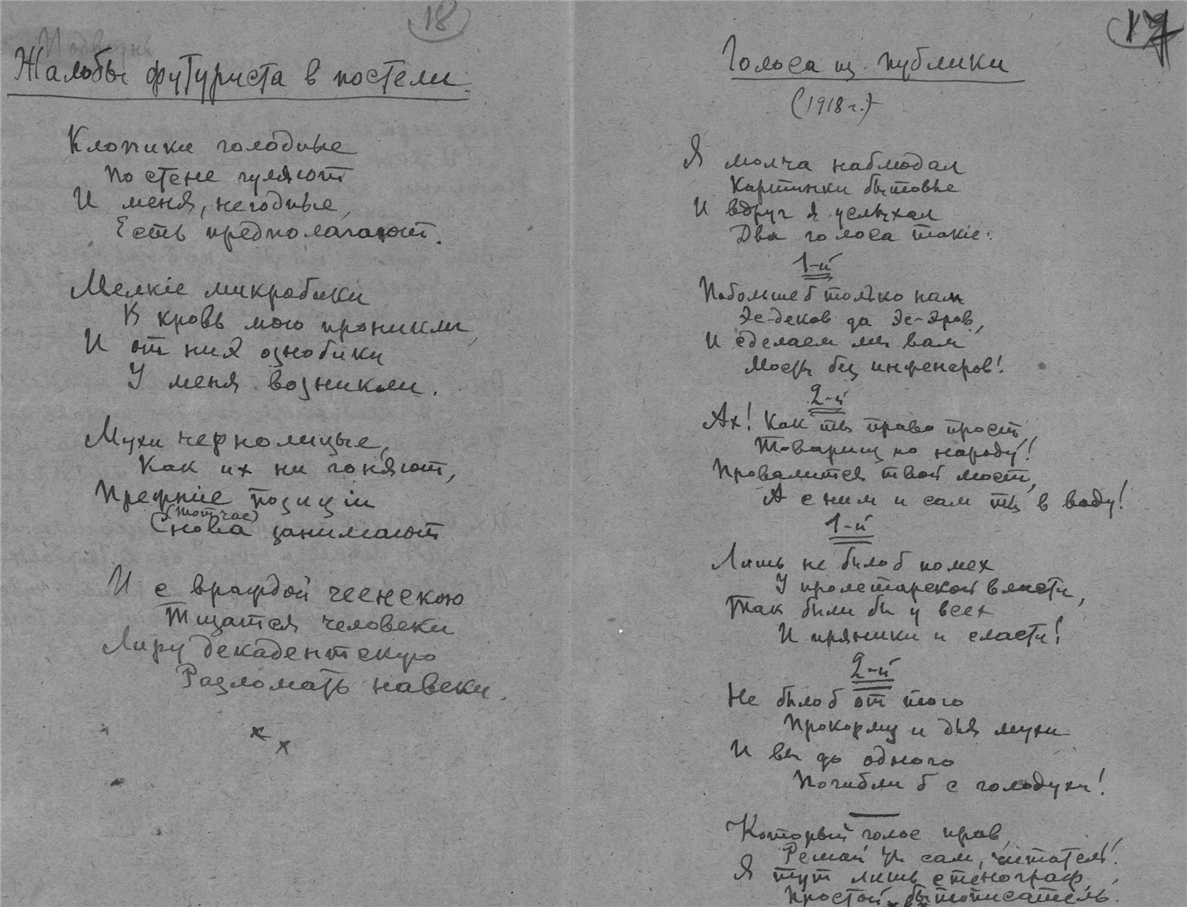 18
Жалобы футуриста в постели.
Клопики голодные
По стене гуляют
И меня, негодные,
Есть предполагают.
Мелкіе микробики
В кровь мою проникли,
И от них ознобики
У меня возникли.
Мухи чернолицые,
Как их ни гоняют,
Прежніе позиціи
(тотчас)
Снова занимают
И с враждой
Тщатся человеки
Лиру декадентскую
Разломать навеки.
х х
17
Голоса из публики
(1918 г.)
Я молча наблюдал
Картинки бытовые
И вдруг я услыхал
Два голоса такіе:
1-й
Побольше б только нам
Эс-деков да Эс-эров,
И сделаем мы вам
Мосты без инженеров!
2-й
Ах! Как ты право прост
Товарищ по народу!
Провалится твой мост,
А с ним и сам ты в воду!
1-й
Лишь не было б помех
У пролетарской власти,
Так были бы у всех
И пряники и сласти!
2-й
Не было б от того
Прокорму и для мухи
И вы до одного
Погибли б с голодухи!
Который голос прав,
Решай уж сам, читатель!
Я тут лишь стенограф,
Простой бытописатель.